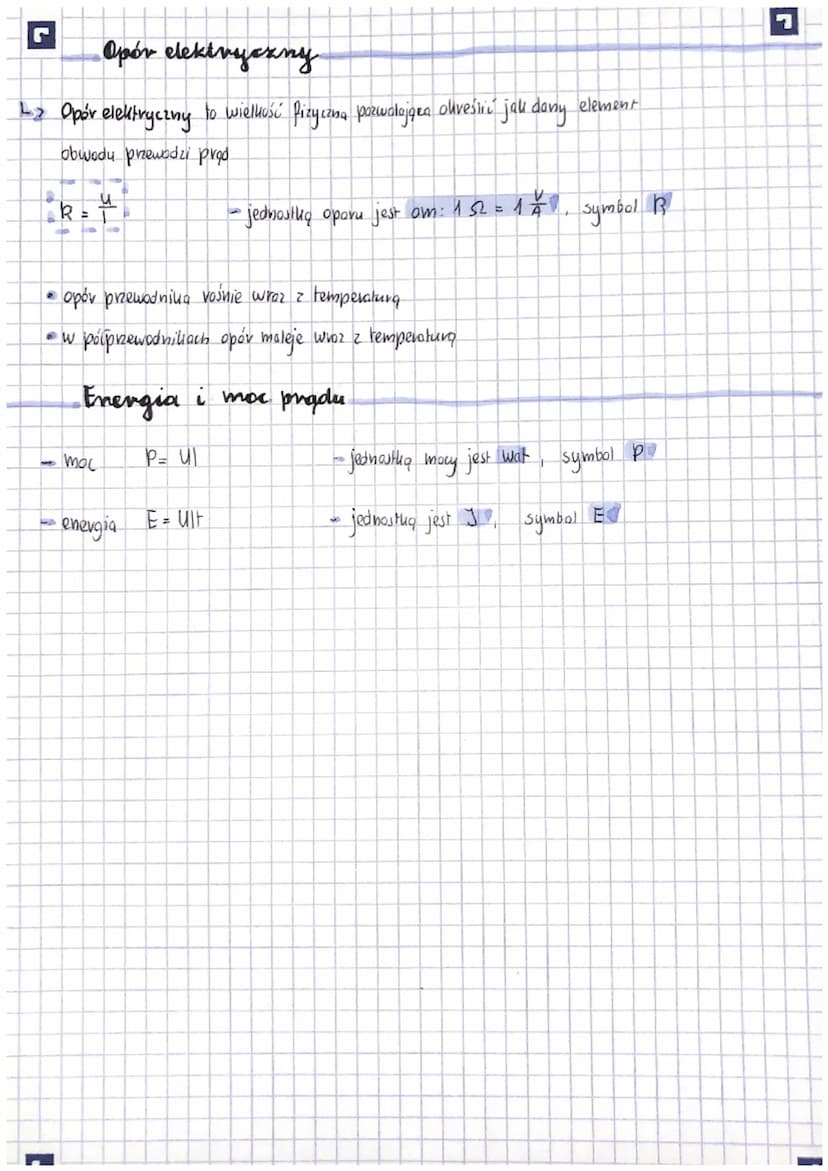 Opór elektryczny
↳ Opór elektryczny to wielkość fizyczna pozwalająca określić jak dany element
obwodu przewodzi prąd
R = U/I - jednostką oporu jest om: 1 Ω = 1 V/A, symbol R
• opór przewodnika rośnie wraz z temperaturą
• w półprzewodnikach opór maleje wraz z temperaturą
Energia i moc prądu
- moc P = UI - jednostką mocy jest wat, symbol P
- energia E = UIt - jednostką jest J, symbol E